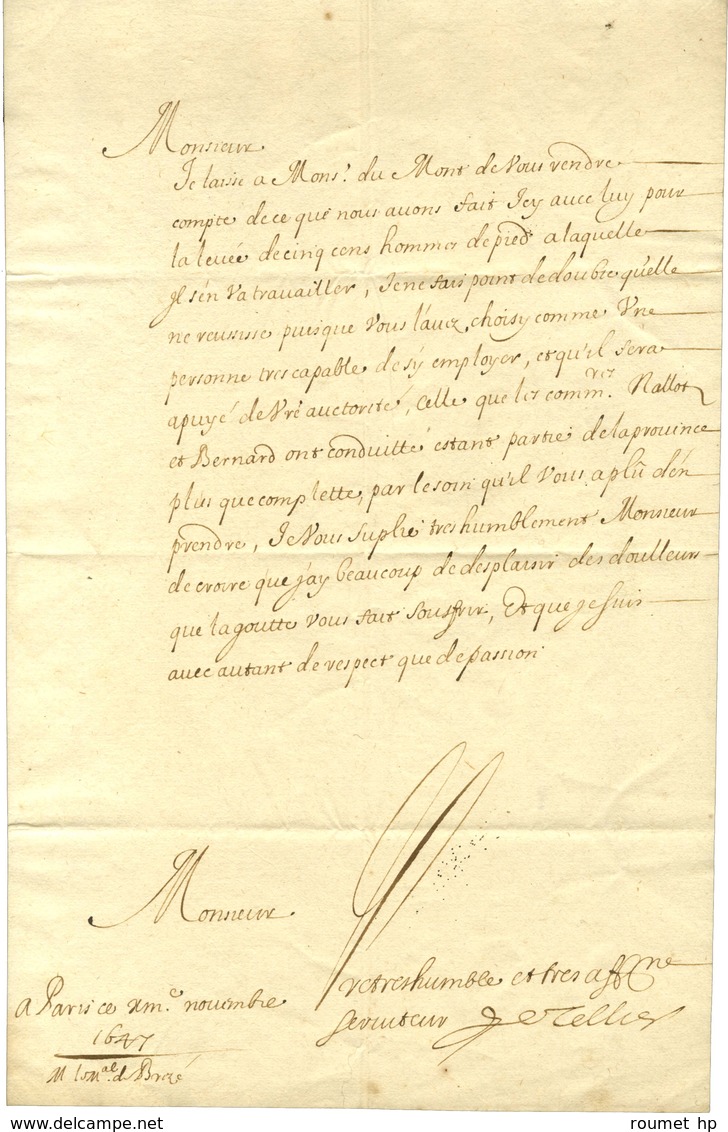 Monsieur
Je laisse a Mons.r du Mont de Vous rendre
compte de ce que nous avons fait Icy avec luy pour
la levée de cinq cens hommes de pied a laquelle
Il s'en va travailler, Je ne fais point de doubte qu'elle
ne reussisse puisque Vous l'avez choisy comme Une
personne tres capable de s'y employer, et qu'il sera
apuyé de Vre auctorité, Celle que les comm.res Nallot
et Bernard ont conduitte estant partie de la province
plus que complette, par le soin qu'il Vous a plû d'en
prendre, Je Vous suplie tres humblement Monsieur
de croire que j'ay beaucoup de desplaisir des doulleurs
que la goutte Vous fait souffrir, Et que je suis
avec autant de respect que de passion
Monsieur
vre tres humble et tres aff.ne
serviteur Le Tellier
A Paris ce xm.e novembre
1647
M le M.al de Brezé
roumet hp